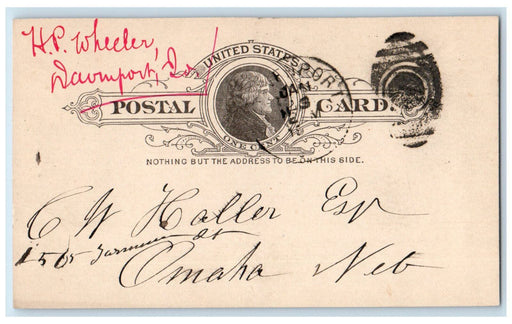 H.P. Wheeler,
Davenport, Io.
UNITED STATES
POSTAL CARD.
ONE CENT
PORT
JAN
9
M
NOTHING BUT THE ADDRESS TO BE ON THIS SIDE.
C W Haller Esq
1505 Farnum St
Omaha Neb